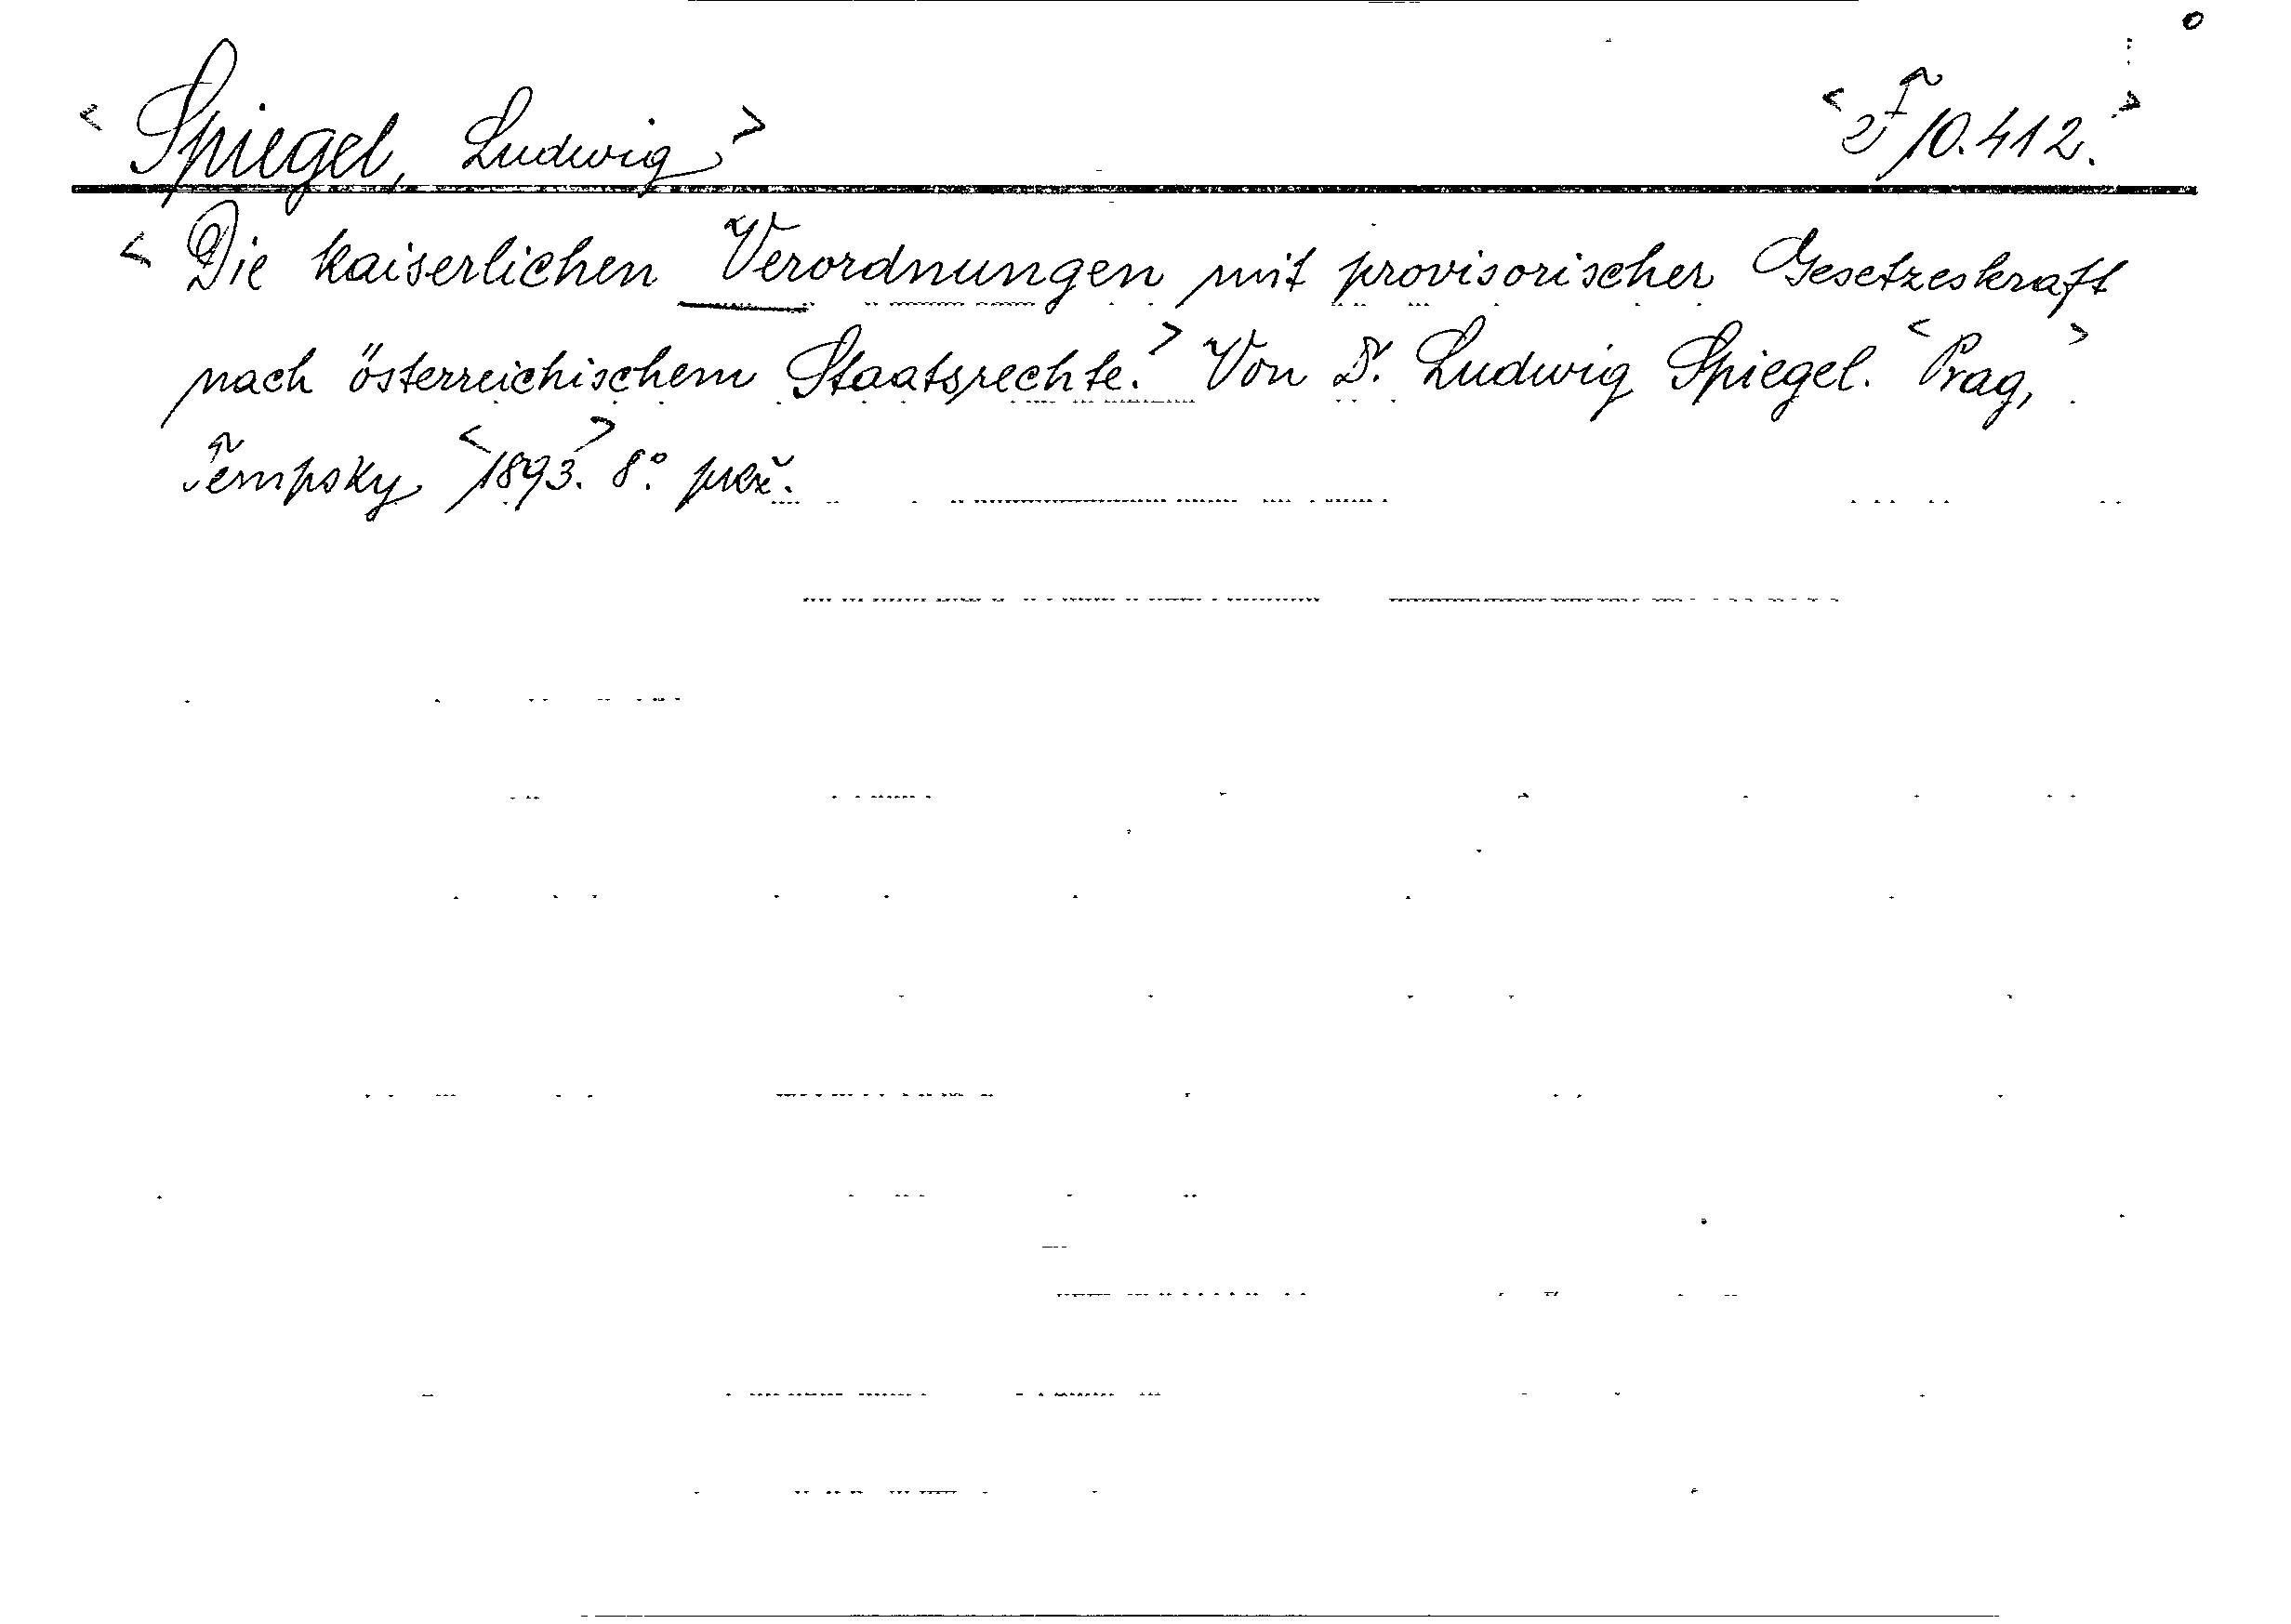 < Spiegel, Ludwig > < F 10.412. >
< Die kaiserlichen Verordnungen mit provisorischer Gesetzeskraft
nach österreichischem Staatsrechte. > Von Dr. Ludwig Spiegel. < Prag, >
Tempsky < 1893. > 8.°